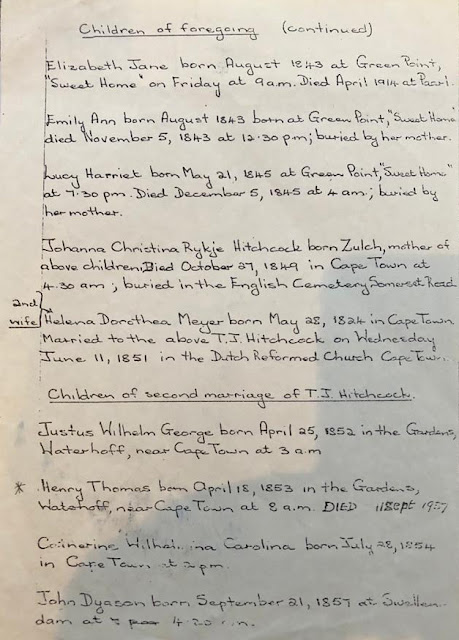 Children of foregoing (continued)
Elizabeth Jane born August 1843 at Green Point,
"Sweet Home" on Friday at 9 a.m. Died April 1914 at Paarl.
Emily Ann born August 1843 born at Green Point, "Sweet Home"
died November 5, 1843 at 12.30 p.m; buried by her mother.
Lucy Harriet born May 21, 1845 at Green Point, "Sweet Home"
at 7.30 pm. Died December 5, 1845 at 4 am; buried by
her mother.
Johanna Christina Rykje Hitchcock born Zulch, mother of
above children, Died October 27, 1849 in Cape Town at
4.30 am; buried in the English Cemetery Somerset Road
2nd
wife Helena Dorothea Meyer born May 28, 1824 in Cape Town
Married to the above T.J. Hitchcock on Wednesday
June 11, 1851 in the Dutch Reformed Church Cape Town.
Children of second marriage of T.J. Hitchcock.
Justus Wilhelm George born April 25, 1852 in the Gardens,
Waterhoff, near Cape Town at 3 a.m
* Henry Thomas born April 18, 1853 in the Gardens,
Watehoff, near Cape Town at 8 a.m. DIED 11 Sept 1957
Wilhelmina Carolina born July 28, 1854
in Cape Town at pm.
John Dyason born September 21, 1857 at Swellen
dam at 4.20